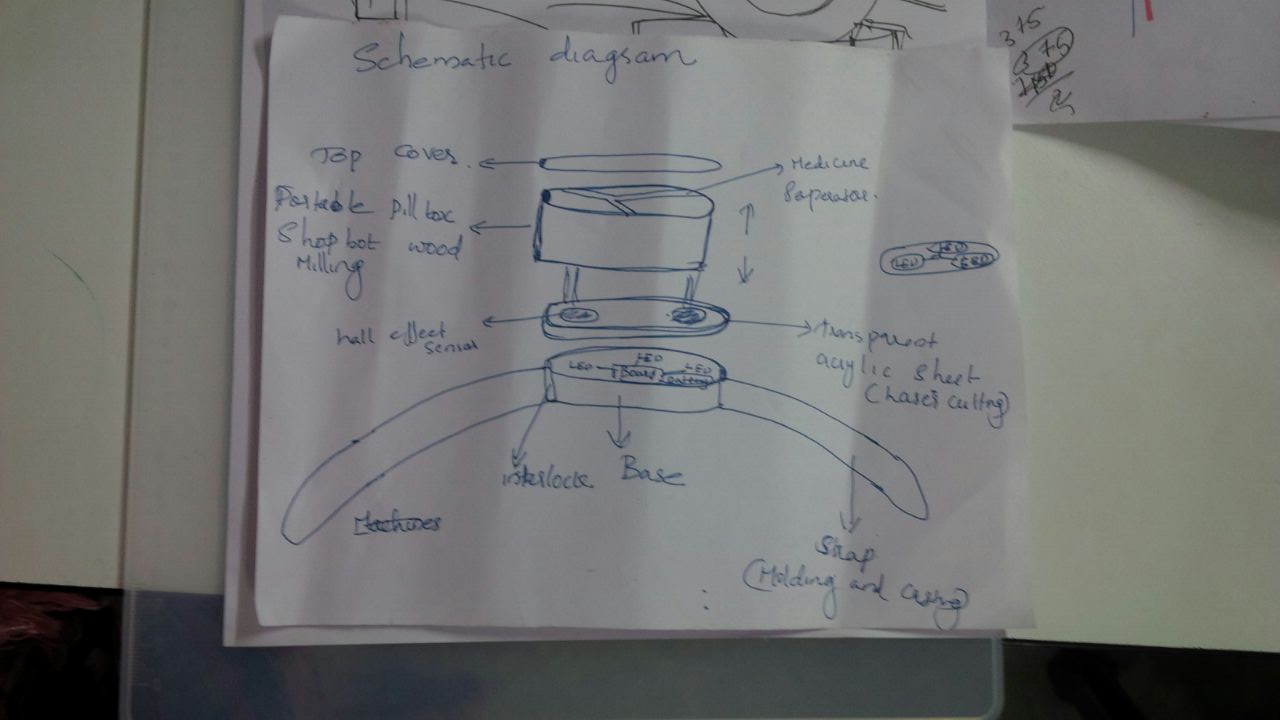 Schematic diagram
Top cover.
Medicine
Seperator.
Portable pill box
Shopbot wood
Milling
LED
LED LED
hall effect
sensor
transparent
acrylic sheet
(laser cutting)
LED
LED LED
Board Battery
interlock Base
Machines
Strap
(Molding and casting)
3+5